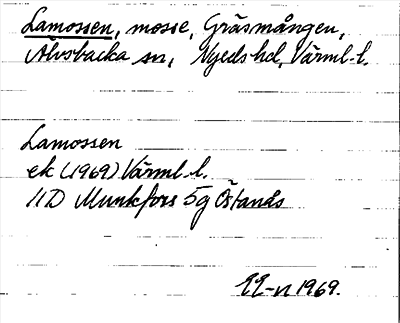 Lamossen, mosse, Gräsmången,
Älvsbacka sn, Nyeds hd, Värml. l.
Lamossen
ek (1969) Värml. l.
11D Munkfors 5g Östanås
1969.